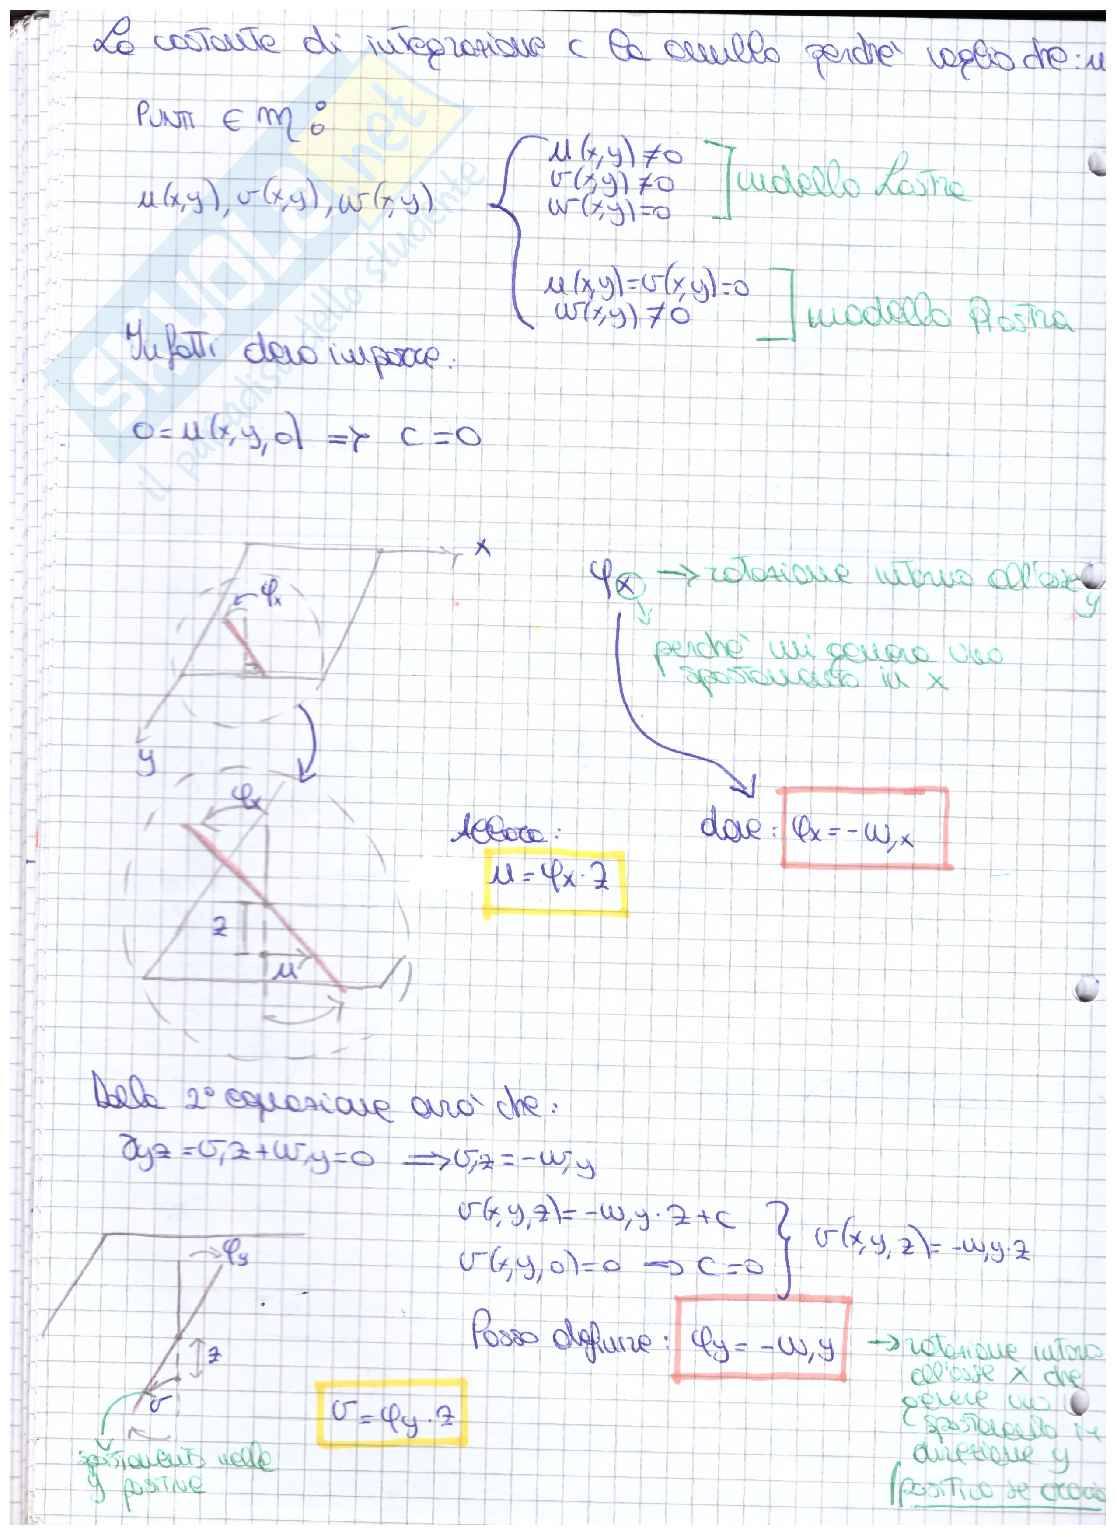 La costante di integrazione c la annullo perché voglio che: u
PUNTI ∈ m:
u(x,y), v(x,y), w(x,y)
u(x,y)≠0
v(x,y)≠0
w(x,y)=0
modello Lastra
u(x,y)=v(x,y)=0
w(x,y)≠0
modello Piastra
Infatti devo imporre:
0=u(x,y,0) => c=0
x
φx
y
φx → rotazione intorno all'asse y
perché mi genera uno
spostamento in x
φx
z
u
Allora:
u=φx·z
dove: φx=-w,x
Dalla 2° equazione avrò che:
γyz=v,z+w,y=0 => v,z=-w,y
v(x,y,z)=-w,y·z+c
v(x,y,0)=0 => c=0
v(x,y,z)=-w,y·z
φy
z
v
Posso definire: φy=-w,y
→ rotazione intorno
all'asse x che
genera uno
spostamento in
direzione y
(positivo se
v=φy·z
spostamento nelle
y positive
SKUOLA.net
il paradiso dello studente